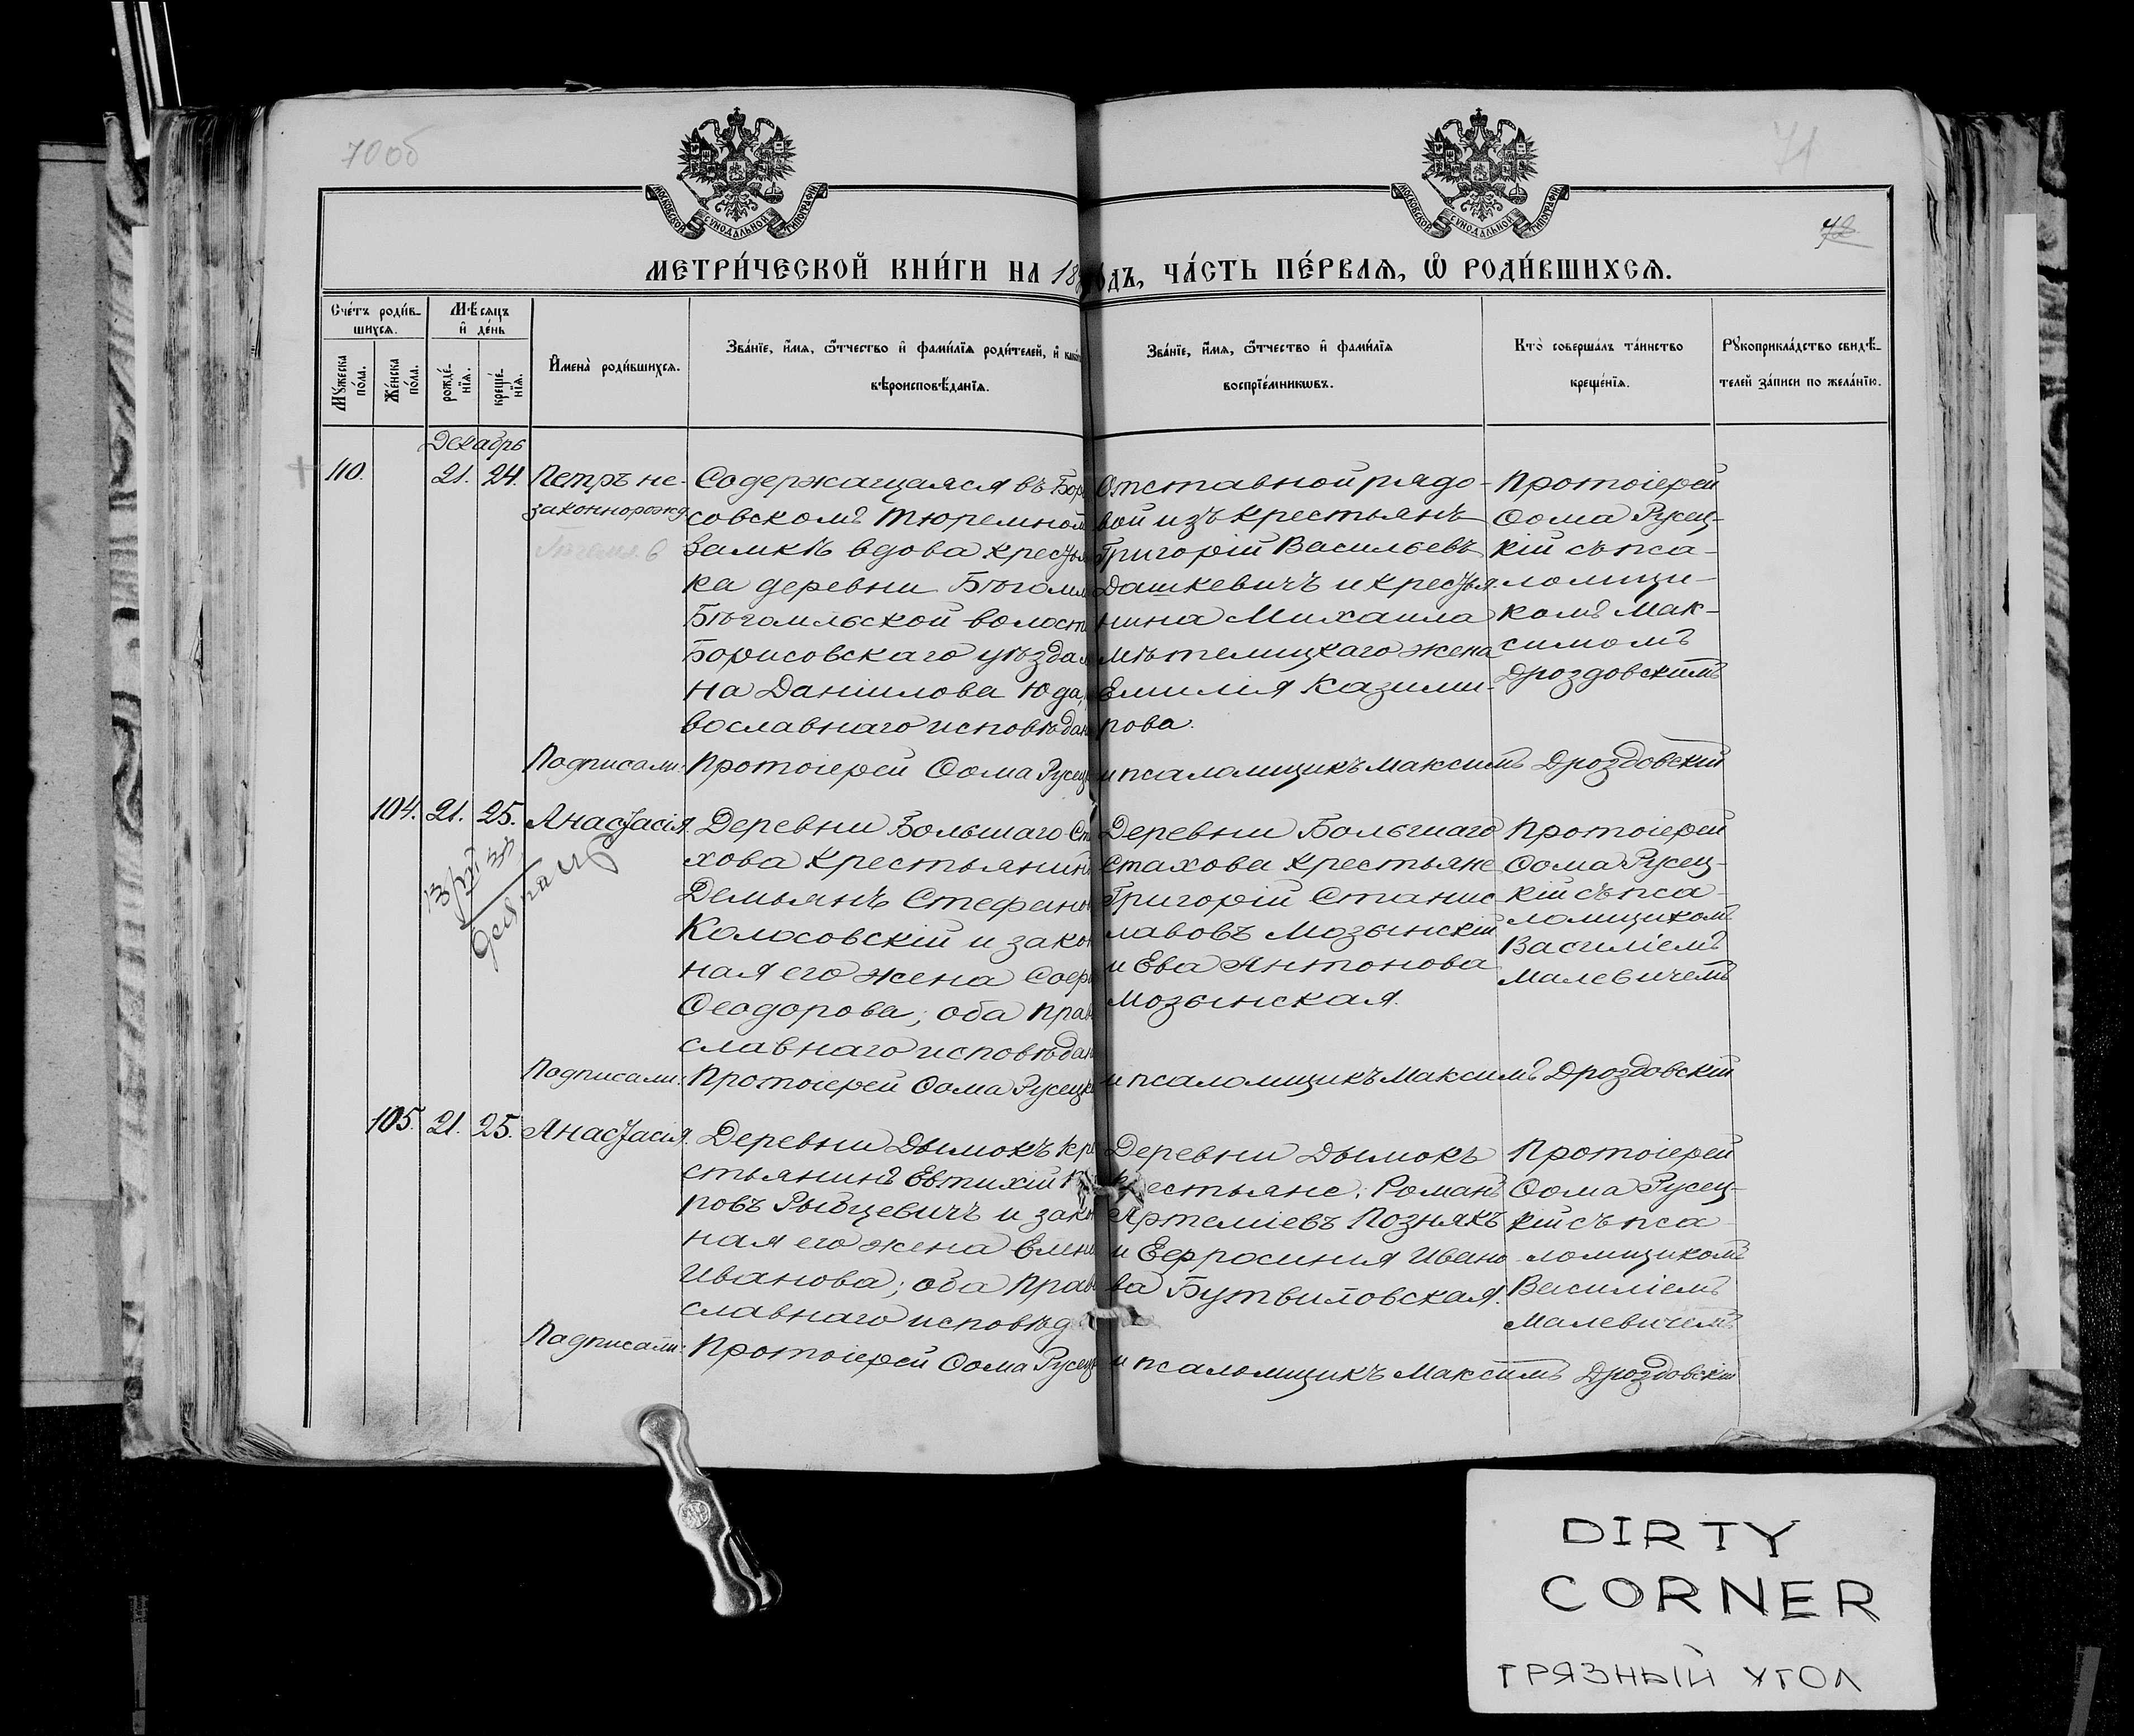 70об
71
МОСКОВСКОЙ СѴНОДАЛЬНОЙ ТИПОГРАФІИ
МОСКОВСКОЙ СѴНОДАЛЬНОЙ ТИПОГРАФІИ
МЕТРИ́ЧЕСКОЙ КНИ́ГИ НА 18 ОДЪ, ЧА́СТЬ ПЕ́РВАЯ, Ѽ РОДИ́ВШИХСЯ.
Сче́тъ роди́в-
шихся.
Мѣсяцъ
и҆ де́нь
Мꙋ́жеска по́ла.
Же́нска по́ла.
рожде́-нїя.
креще́-нїя.
И҆мена̀ роди́вшихся.
Зва́нїе, и҆́мя, ѻ҆́тчество и҆ фами́лїя роди́телей, и҆ како́
вѣроисповѣ́данїя.
Зва́нїе, и҆́мя, ѻ҆́тчество и҆ фами́лїя
воспрїе́мникѡвъ.
Кто̀ соверша́лъ та́инство
креще́нїя.
Рꙋкоприкла́дство свидѣ́-
телей за́писи по жела́нїю.
Декабрь
110. 21. 24. Петръ не-
законнорожд.
Содержащаяся въ Бори
совскомъ тюремном
замкѣ вдова крестья
ка деревни Бѣгомл
Бѣгомльской волост
Борисовскаго уѣзда
на Даніилова Юда,
вославнаго исповѣдан
Отставной рядо-
вой изъ крестьянъ
Григорій Васильевъ
Дашкевичъ и крестья-
нина Михаила
Мѣтелицкаго жена
Емилія Казими-
рова.
Протоіерей
Ѳома Русец-
кій съ пса-
ломщи-
комъ Мак-
симомъ
Дроздовскимъ
Подписали: Протоіерей Ѳома Русец и псаломщикъ Максимъ Дроздовскій
104. 21. 25. Анастасія.
Деревни Большаго Ст
хова крестьянин
Демьянъ Стефанов
Колосовскій и закон
ная его жена Соф
Ѳеодорова; оба прав
славнаго исповѣдан
Деревни Большаго
Стахова крестьяне
Григорій Станис
лавовъ Мозынскій
и Ева Антонова
Мозынская.
Протоіерей
Ѳома Русец-
кій съ пса-
ломщикомъ
Василіемъ
Малевичемъ
Подписали: Протоіерей Ѳома Русецк и псаломщикъ Максимъ Дроздовскій
105. 21. 25. Анастасія.
Деревни Дымокъ кре
стьянинъ Евтихій
ровъ Рыбцевичъ и зако
ная его жена Елен
Иванова; оба право
славнаго исповѣд
Деревни Дымокъ
крестьяне: Романъ
Артеміевъ Познякъ
и Евфросинія Ивано
ва Бутвиловская.
Протоіерей
Ѳома Русец-
кій съ пса
ломщикомъ
Василіемъ
Малевичемъ
Подписали: Протоіерей Ѳома Русец и псаломщикъ Максимъ Дроздовскій
DIRTY
CORNER
ГРЯЗНЫЙ УГОЛ